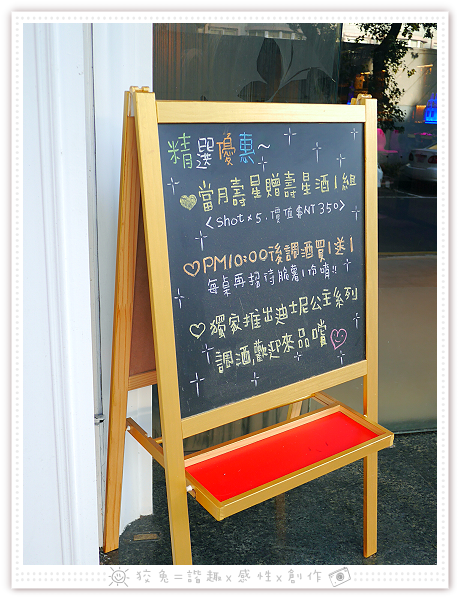 精選優惠~
♡當月壽星贈壽星酒1組
<shot×5,價值套NT350>
♡PM10:00後調酒買1送1
每桌再招待脆薯1份唷!!
♡獨家推出迪士尼公主系列
調酒,歡迎來品嚐♡
狡兔=諧趣x感性x創作